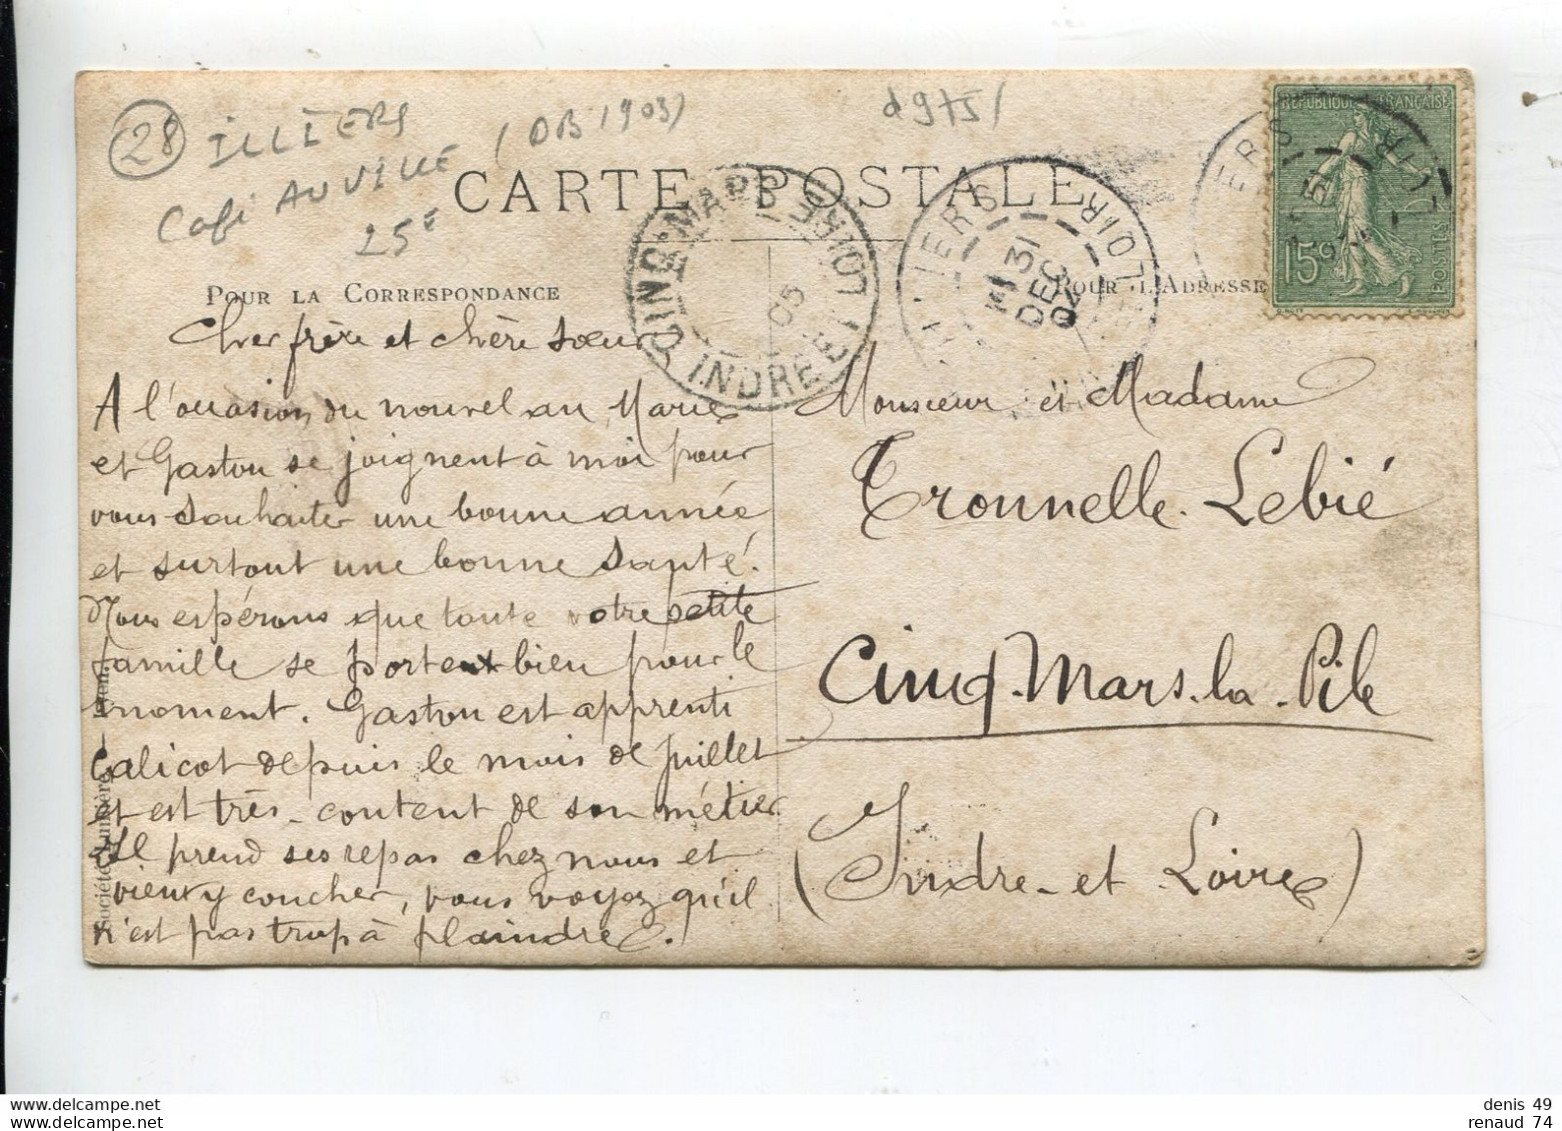 28
ILLIERS
Café AUVILLE
(DB 1903)
25€
d975/
CARTE POSTALE
POUR LA CORRESPONDANCE
POUR L'ADRESSE
CINQ-MARS
INDRE-ET-LOIRE
05
ILLIERS
31
DEC
04
LOIR
IERS
LOIR
REPUBLIQUE FRANÇAISE
15c
POSTES
Cher frère et chère sœur
A l'occasion du nouvel an Marie
et Gaston se joignent à moi pour
vous souhaiter une bonne année
et surtout une bonne santé.
Nous espérons que toute votre petite
famille se porte bien pour le
moment. Gaston est apprenti
calicot depuis le mois de juillet
et est très content de son métier
Il prend ses repas chez nous et
vient y coucher, vous voyez qu'il
n'est pas trop à plaindre.
Société Lumière. - Lyon.
Monsieur et Madame
Tronnelle. Lebié
Cinq-Mars-la-Pile
(Indre-et-Loire)
delcampe.net
delcampe.net
denis 49
renaud 74